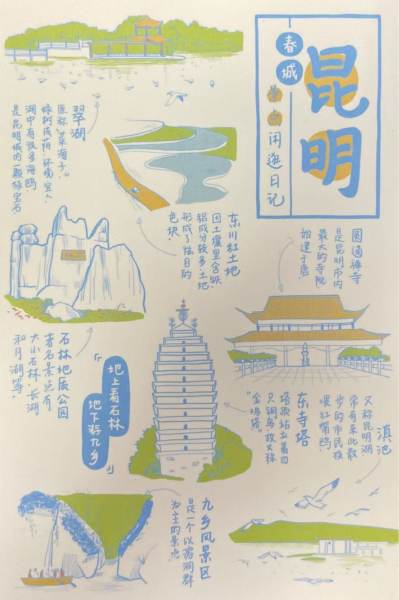 昆明
春城
闲逛日记
翠湖
称"菜海子",
绿树成荫,环境宜人,
湖中有很多海鸥,
是昆明城内一颗绿宝石
东川红土地
因土壤里含铁、
铝成分较多,土地
形成了炫目的
色块。
圆通禅寺
是昆明市内
最大的寺院
始建于唐
石林地质公园
著名景点有
大小石林、长湖
和月湖等。
「地上看石林
地下游九乡」
东寺塔
塔顶站立着四
只铜鸟,故又称
"金鸡塔"。
滇池
又称昆明湖
常有来此散
步的市民
喂红嘴鸥。
九乡风景区
是一个以溶洞群
为主的景点